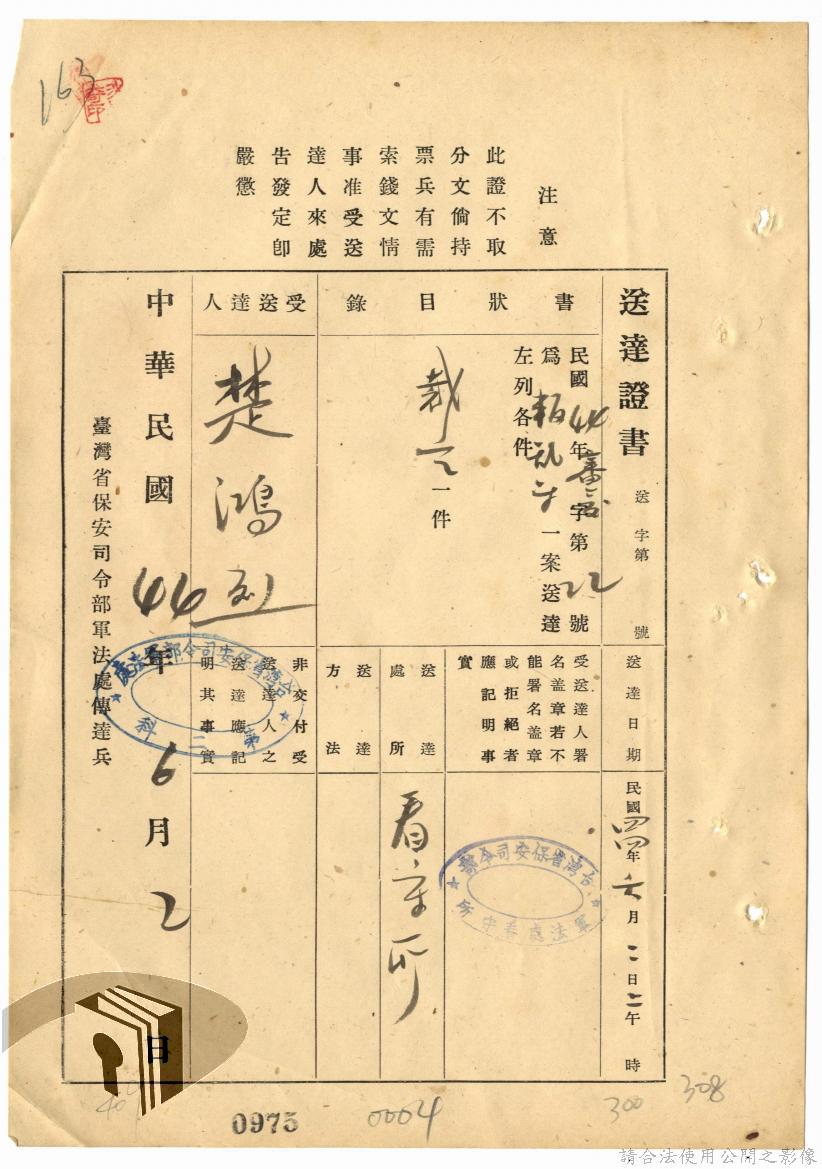 163
注意
此證不取
分文倘持
票兵有需
索錢文情
事准受送
達人來處
告發定卽
嚴懲
送達證書
送字第 號
書狀目錄
民國44年審 字第22號
為叛亂等一案送達
左列各件
裁定一件
受送達人
楚鴻烈
送達日期
民國四四年六月二日上午 時
受送達人署
名盖章若不
能署名盖章
或拒絕者
應記明事
實
台灣省保安司令部
軍法處看守所
送達處所
看守所
送達方法
非交付受
送達人之
送達應記
明其事實
中華民國44年6月2日
台灣省保安司令部軍法處
第二科
臺灣省保安司令部軍法處傳達兵
0975
0004
300
308
請合法使用公開之影像